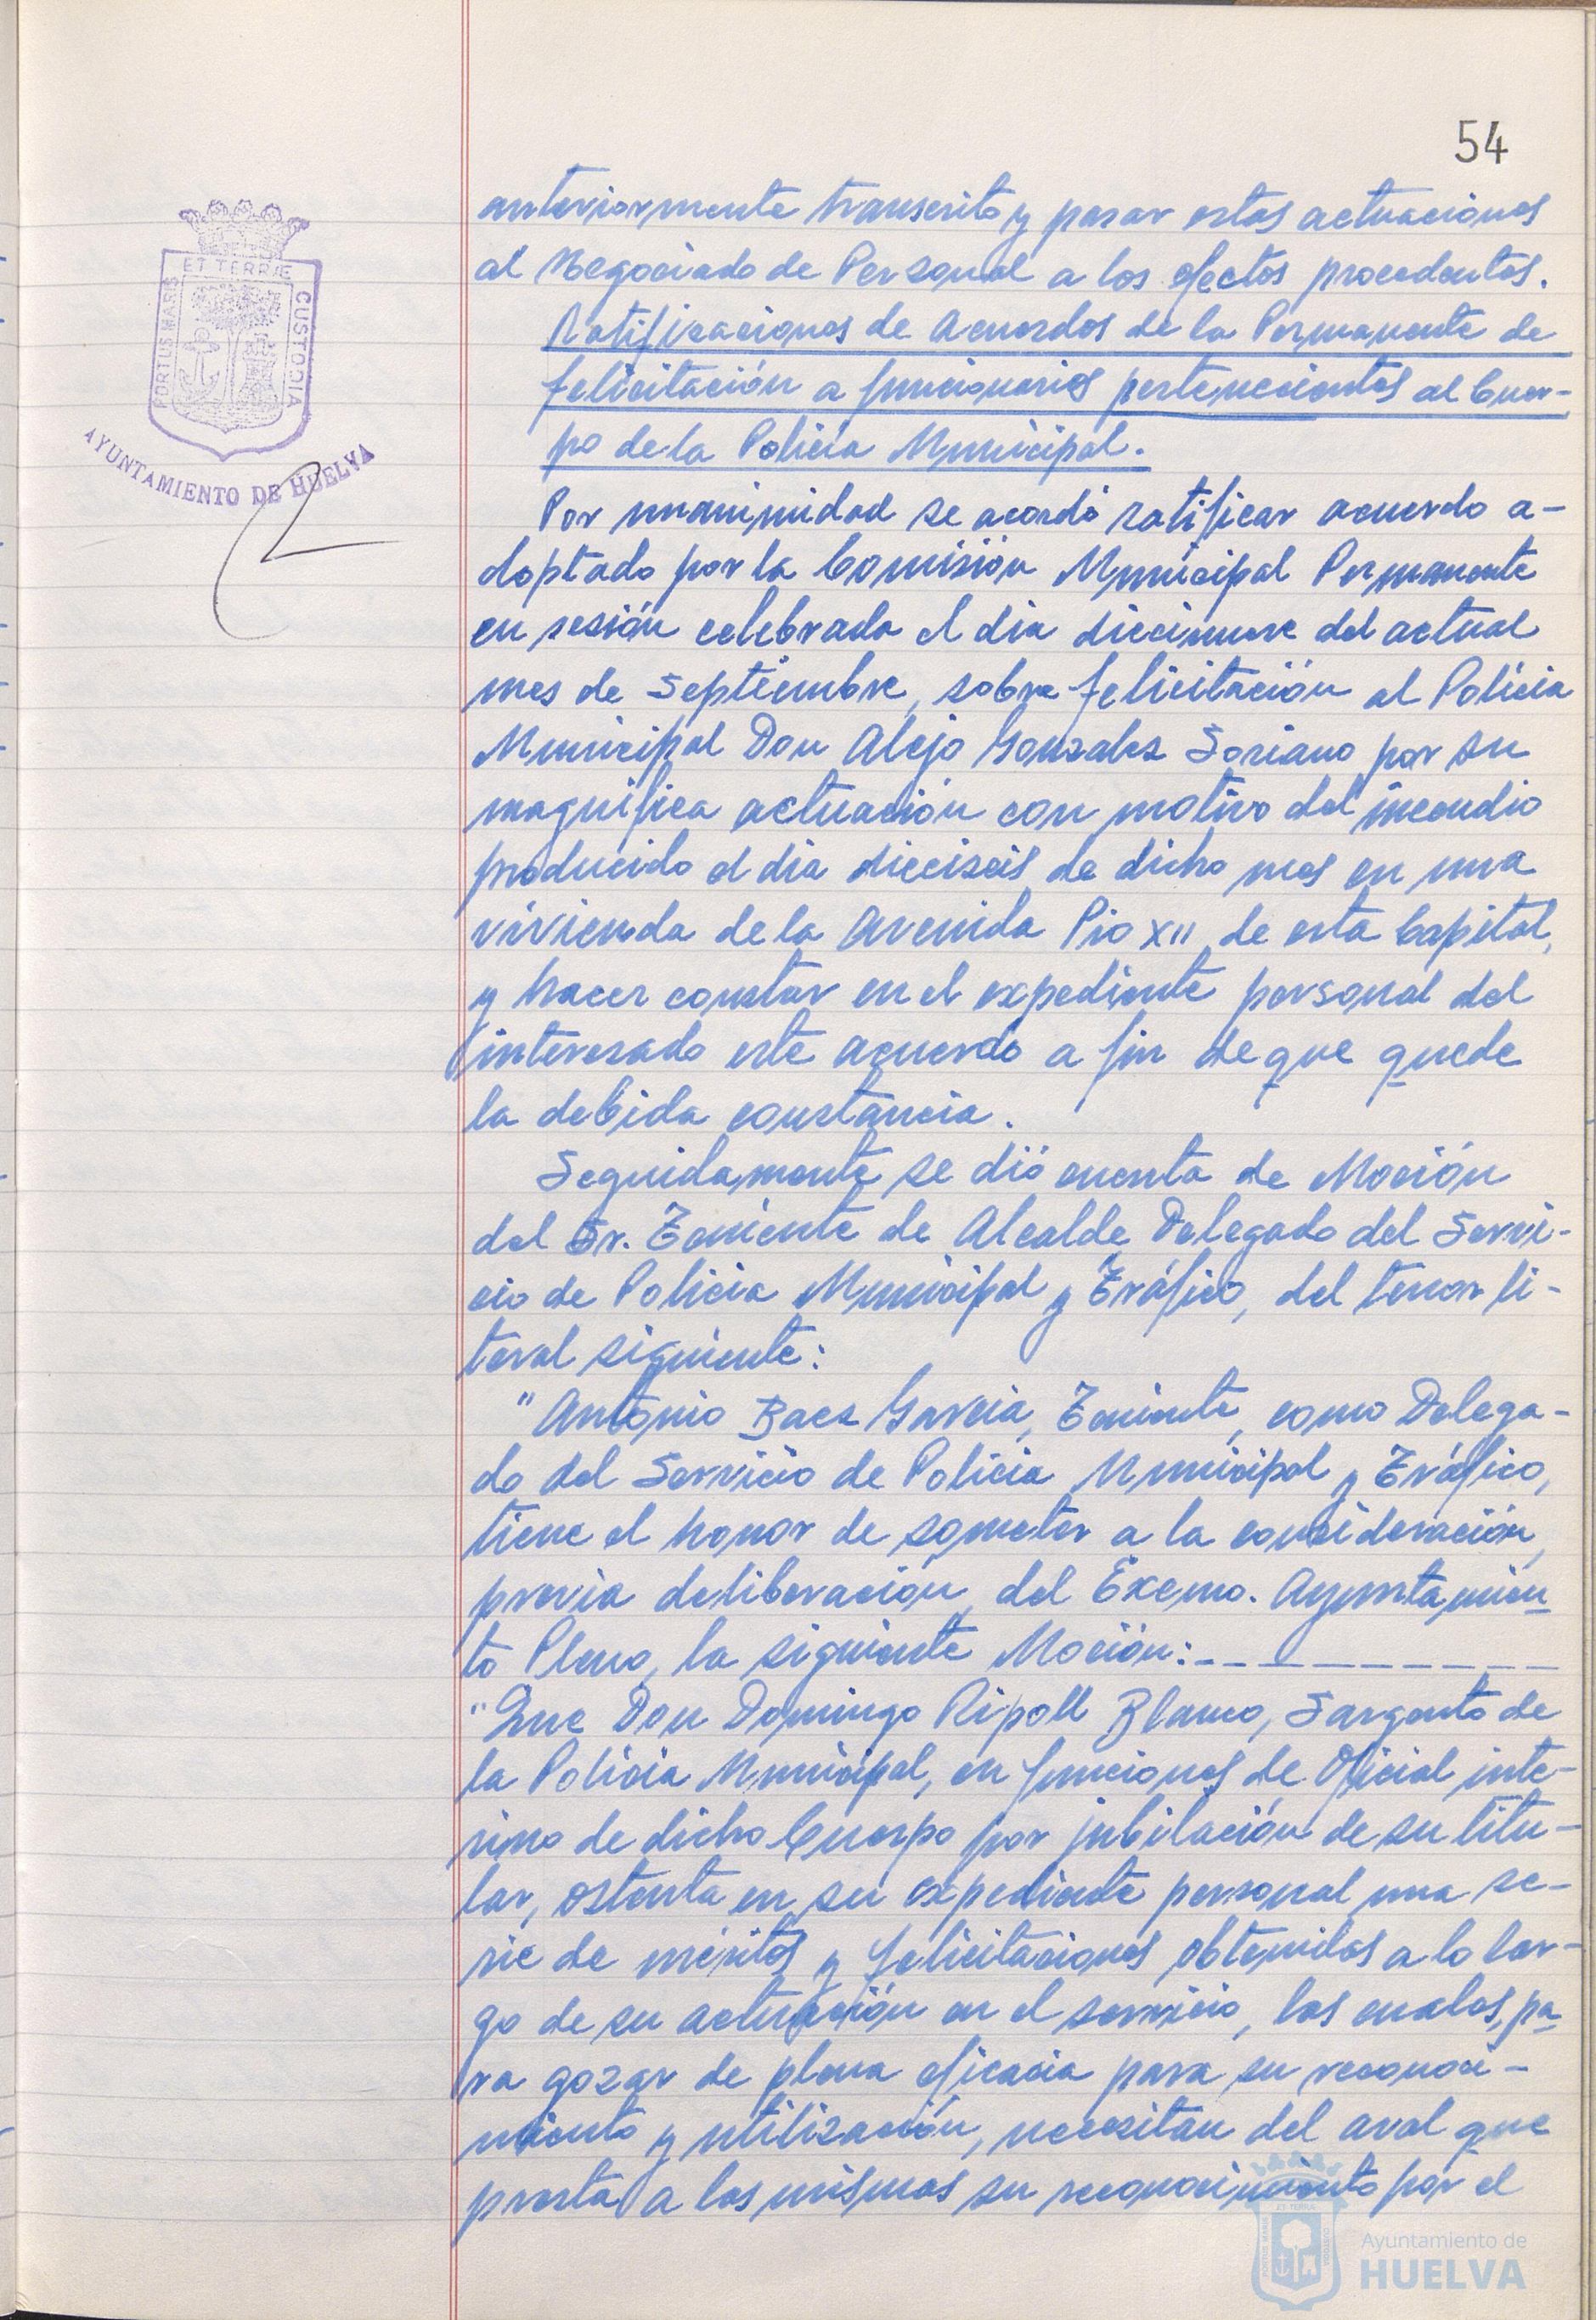 54
ET TERRÆ
PORTUS MARIS
CUSTODIA
AYUNTAMIENTO DE HUELVA
anteriormente transcrito y pasar estas actuaciones
al Negociado de Personal a los efectos procedentes.
Ratificaciones de Acuerdos de la Permanente de
felicitación a funcionarios pertenecientes al Cuer-
po de la Policia Municipal.
Por unanimidad se acordó ratificar acuerdo a-
doptado por la Comisión Municipal Permanente
en sesión celebrada el dia diecinueve del actual
mes de Septiembre, sobre felicitación al Policia
Municipal Don Alejo Gonzalez Soriano por su
magnifica actuación con motivo del incendio
producido el dia dieciseis de dicho mes en una
vivienda de la Avenida Pio XII, de esta Capital,
y hacer constar en el expediente personal del
interesado este acuerdo a fin de que quede
la debida constancia.
Seguidamente se dió cuenta de Moción
del Sr. Teniente de Alcalde Delegado del Servi-
cio de Policia Municipal y Tráfico, del tenor li-
teral siguiente:
"Antonio Baez Garcia, Teniente, como Delega-
do del Servicio de Policia Municipal y Tráfico,
tiene el honor de someter a la consideración,
previa deliberación, del Excmo. Ayuntamien
to Pleno, la siguiente Moción:-----------
"Que Don Domingo Ripoll Blanco, Sargento de
la Policia Municipal, en funciones de Oficial inte-
rino de dicho Cuerpo por jubilación de su titu-
lar, ostenta en su expediente personal una se-
rie de méritos y felicitaciones obtenidas a lo lar-
go de su actuación en el servicio, los cuales, pa
ra gozar de plena eficacia para su reconoci-
miento y utilización, necesitan del aval que
presta a los mismos su reconocimiento por el
Ayuntamiento de
HUELVA